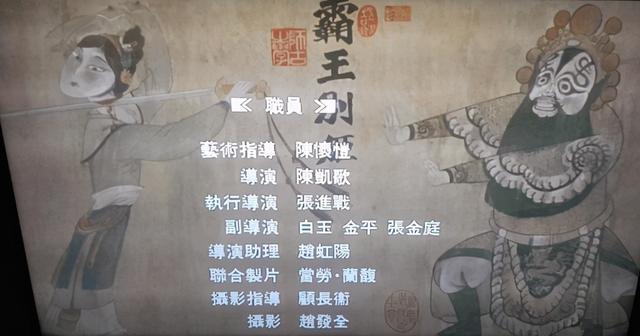 霸王別姬
≪ 職員 ≫
藝術指導 陳懷愷
導演 陳凱歌
執行導演 張進戰
副導演 白玉 金平 張金庭
導演助理 趙虹陽
聯合製片 當勞·蘭馥
攝影指導 顧長衞
攝影 趙發全